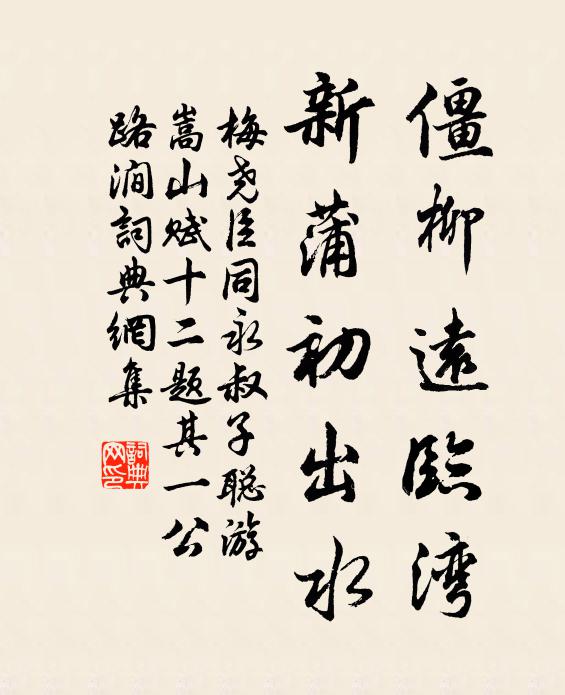 僵柳遠臨湾
新蒲初出水
梅尧臣同永叔子聪游
嵩山赋十二题其一公
路涧詞典網集
詞典網印